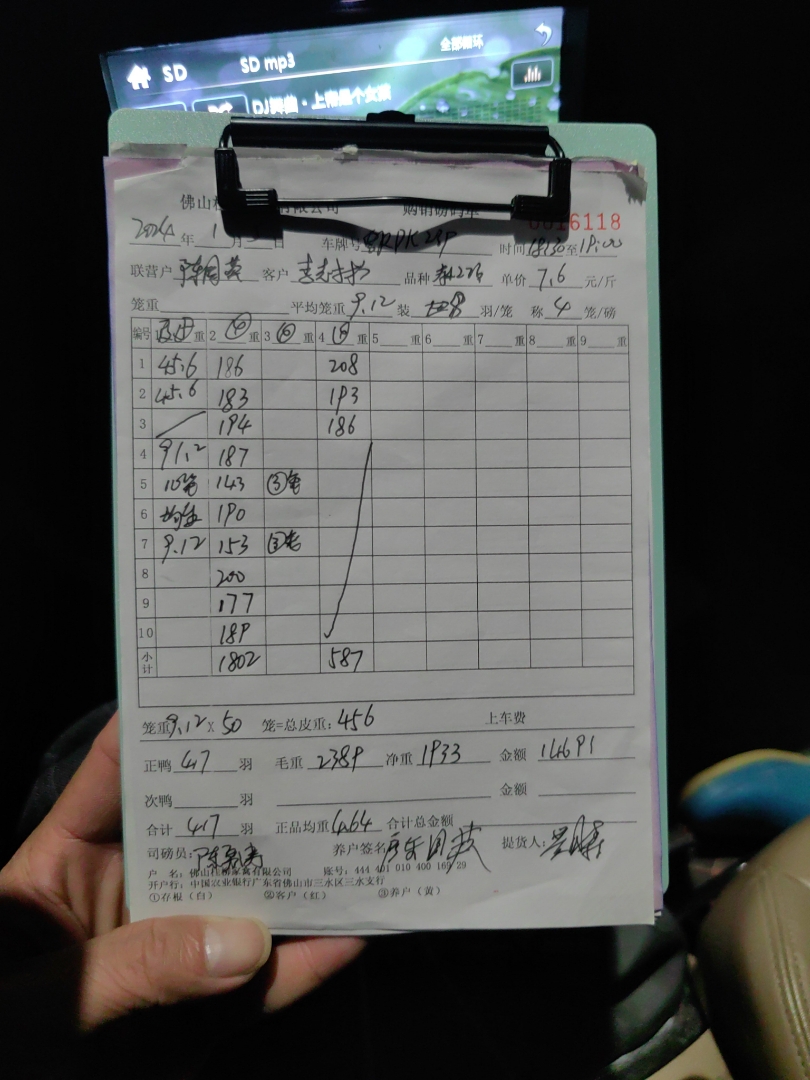 SD SD mp3 全部循环
DJ舞曲·上帝是个女孩
佛山 有限公司 购销磅码单
0016118
2024 年 1 月 日 车牌号 时间 18:30 至 19:00
联营户 客户 品种 单价 7.6 元/斤
笼重 平均笼重 9.12 装 8 羽/笼 称 4 笼/磅
编号 重 2 ⑥ 重 3 ⑥ 重 4 重 5 重 6 重 7 重 8 重 9 重
1 45.6 186 208
2 45.6 183 193
3 194 186
4 91.2 187
5 10笼 143 ③笼
6 190
7 9.12 153 ③笼
8 200
9 177
10 189
小计 1802 587
笼重 9.12 X 50 笼=总皮重: 456 上车费
正鸭 417 羽 毛重 2389 净重 1933 金额 14691
次鸭 羽 金额
合计 417 羽 正品均重 4.64 合计总金额
司磅员: 养户签名 提货人:
户 名: 佛山桂柳家禽有限公司 账号: 444 401 010 400 169 29
开户行: 中国农业银行广东省佛山市三水区三水支行
①存根(白) ②客户(红) ③养户(黄)